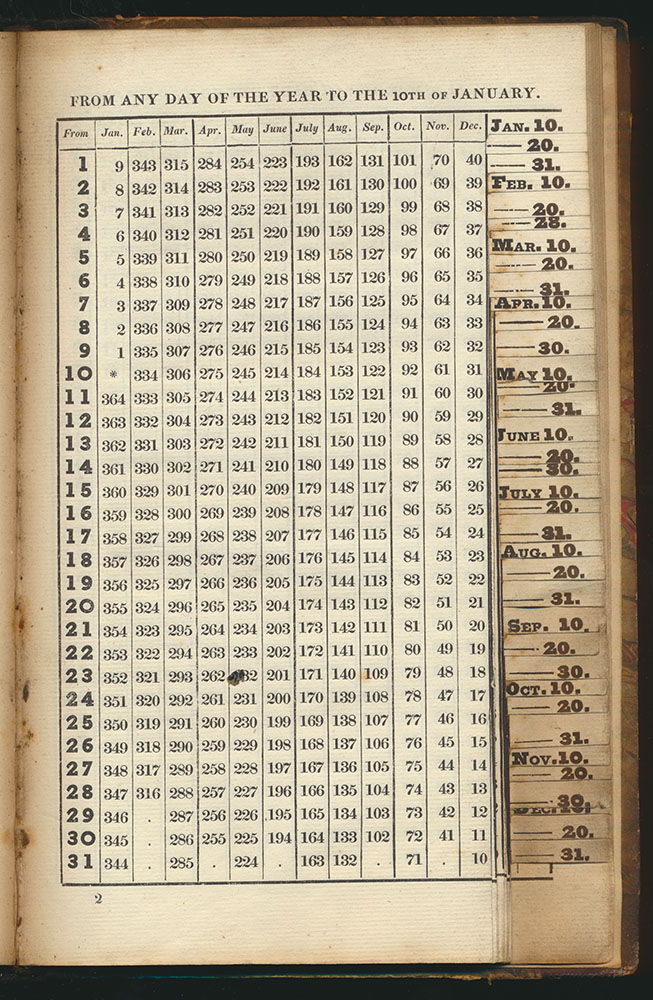 FROM ANY DAY OF THE YEAR TO THE 10TH OF JANUARY.
From Jan. Feb. Mar. Apr. May June July Aug. Sep. Oct. Nov. Dec.
1 9 343 315 284 254 223 193 162 131 101 70 40
2 8 342 314 283 253 222 192 161 130 100 69 39
3 7 341 313 282 252 221 191 160 129 99 68 38
4 6 340 312 281 251 220 190 159 128 98 67 37
5 5 339 311 280 250 219 189 158 127 97 66 36
6 4 338 310 279 249 218 188 157 126 96 65 35
7 3 337 309 278 248 217 187 156 125 95 64 34
8 2 336 308 277 247 216 186 155 124 94 63 33
9 1 335 307 276 246 215 185 154 123 93 62 32
10 * 334 306 275 245 214 184 153 122 92 61 31
11 364 333 305 274 244 213 183 152 121 91 60 30
12 363 332 304 273 243 212 182 151 120 90 59 29
13 362 331 303 272 242 211 181 150 119 89 58 28
14 361 330 302 271 241 210 180 149 118 88 57 27
15 360 329 301 270 240 209 179 148 117 87 56 26
16 359 328 300 269 239 208 178 147 116 86 55 25
17 358 327 299 268 238 207 177 146 115 85 54 24
18 357 326 298 267 237 206 176 145 114 84 53 23
19 356 325 297 266 236 205 175 144 113 83 52 22
20 355 324 296 265 235 204 174 143 112 82 51 21
21 354 323 295 264 234 203 173 142 111 81 50 20
22 353 322 294 263 233 202 172 141 110 80 49 19
23 352 321 293 262 232 201 171 140 109 79 48 18
24 351 320 292 261 231 200 170 139 108 78 47 17
25 350 319 291 260 230 199 169 138 107 77 46 16
26 349 318 290 259 229 198 168 137 106 76 45 15
27 348 317 289 258 228 197 167 136 105 75 44 14
28 347 316 288 257 227 196 166 135 104 74 43 13
29 346 . 287 256 226 195 165 134 103 73 42 12
30 345 . 286 255 225 194 164 133 102 72 41 11
31 344 . 285 . 224 . 163 132 . 71 . 10
2
JAN. 10.
— 20.
— 31.
FEB. 10.
— 20.
— 28.
MAR. 10.
— 20.
— 31.
APR. 10.
— 20.
— 30.
MAY 10.
— 20.
— 31.
JUNE 10.
— 20.
— 30.
JULY 10.
— 20.
— 31.
AUG. 10.
— 20.
— 31.
SEP. 10.
— 20.
— 30.
OCT. 10.
— 20.
— 31.
NOV. 10.
— 20.
— 30.
DEC. 10.
— 20.
— 31.